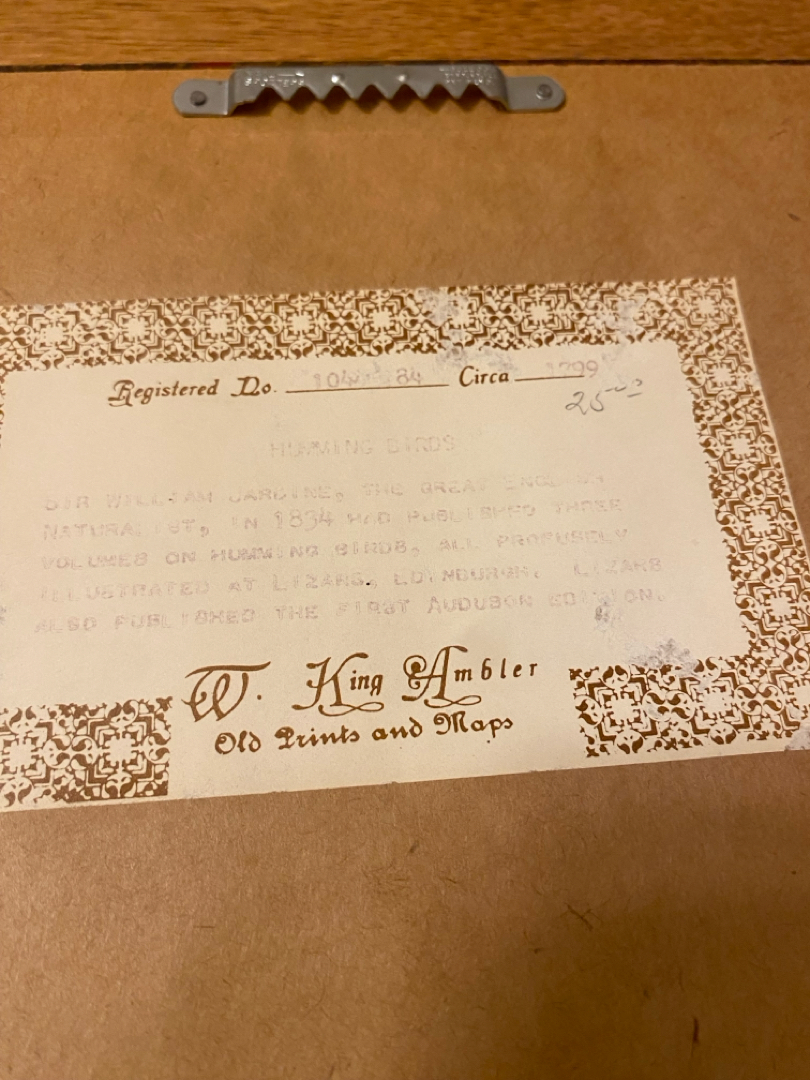 Registered No. Circa 1799
25.00
HUMMING BIRDS
SIR WILLIAM JARDINE, THE GREAT ENGLISH
NATURALIST, IN 1834 HAD PUBLISHED THREE
VOLUMES ON HUMMING BIRDS, ALL PROFUSELY
ILLUSTRATED AT LIZARS, EDINBURGH. LIZARS
ALSO PUBLISHED THE FIRST AUDUBON EDITION.
W. King Ambler
Old Prints and Maps